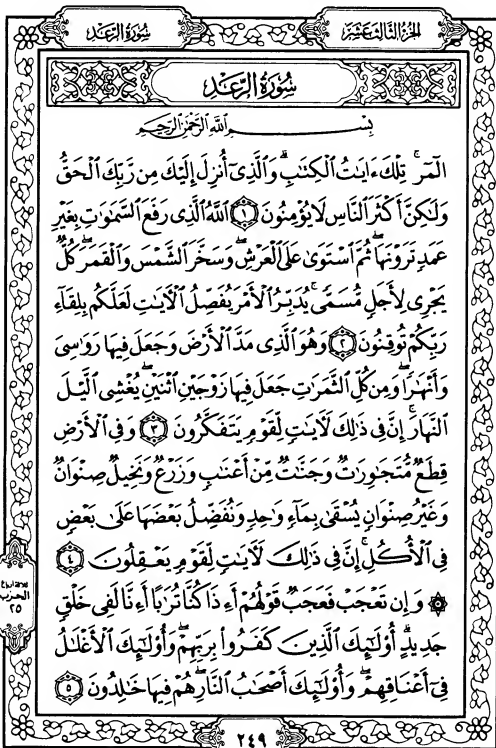 سُورَةُ الرَّعْدِ
الجُزْءُ الثَّالِثَ عَشَرَ
سُورَةُ الرَّعْدِ
بِسْمِ ٱللَّهِ ٱلرَّحْمَٰنِ ٱلرَّحِيمِ
الٓمٓر ۚ تِلْكَ ءَايَٰتُ ٱلْكِتَٰبِ ۗ وَٱلَّذِىٓ أُنزِلَ إِلَيْكَ مِن رَّبِّكَ ٱلْحَقُّ
وَلَٰكِنَّ أَكْثَرَ ٱلنَّاسِ لَا يُؤْمِنُونَ ١ ٱللَّهُ ٱلَّذِى رَفَعَ ٱلسَّمَٰوَٰتِ بِغَيْرِ
عَمَدٍ تَرَوْنَهَا ۖ ثُمَّ ٱسْتَوَىٰ عَلَى ٱلْعَرْشِ ۖ وَسَخَّرَ ٱلشَّمْسَ وَٱلْقَمَرَ ۖ كُلٌّ
يَجْرِى لِأَجَلٍ مُّسَمًّى ۚ يُدَبِّرُ ٱلْأَمْرَ يُفَصِّلُ ٱلْءَايَٰتِ لَعَلَّكُم بِلِقَآءِ
رَبِّكُمْ تُوقِنُونَ ٢ وَهُوَ ٱلَّذِى مَدَّ ٱلْأَرْضَ وَجَعَلَ فِيهَا رَوَٰسِىَ
وَأَنْهَٰرًا ۖ وَمِن كُلِّ ٱلثَّمَرَٰتِ جَعَلَ فِيهَا زَوْجَيْنِ ٱثْنَيْنِ ۖ يُغْشِى ٱلَّيْلَ
ٱلنَّهَارَ ۚ إِنَّ فِى ذَٰلِكَ لَءَايَٰتٍ لِّقَوْمٍ يَتَفَكَّرُونَ ٣ وَفِى ٱلْأَرْضِ
قِطَعٌ مُّتَجَٰوِرَٰتٌ وَجَنَّٰتٌ مِّنْ أَعْنَٰبٍ وَزَرْعٌ وَنَخِيلٌ صِنْوَانٌ
وَغَيْرُ صِنْوَانٍ يُسْقَىٰ بِمَآءٍ وَٰحِدٍ وَنُفَضِّلُ بَعْضَهَا عَلَىٰ بَعْضٍ
فِى ٱلْأُكُلِ ۚ إِنَّ فِى ذَٰلِكَ لَءَايَٰتٍ لِّقَوْمٍ يَعْقِلُونَ ٤
۞ وَإِن تَعْجَبْ فَعَجَبٌ قَوْلُهُمْ أَءِذَا كُنَّا تُرَٰبًا أَءِنَّا لَفِى خَلْقٍ
جَدِيدٍ ۗ أُو۟لَٰٓئِكَ ٱلَّذِينَ كَفَرُوا۟ بِرَبِّهِمْ ۖ وَأُو۟لَٰٓئِكَ ٱلْأَغْلَٰلُ
فِىٓ أَعْنَاقِهِمْ ۖ وَأُو۟لَٰٓئِكَ أَصْحَٰبُ ٱلنَّارِ ۖ هُمْ فِيهَا خَٰلِدُونَ ٥
ثلاثة أرباع
الحزب
٢٥
٢٤٩